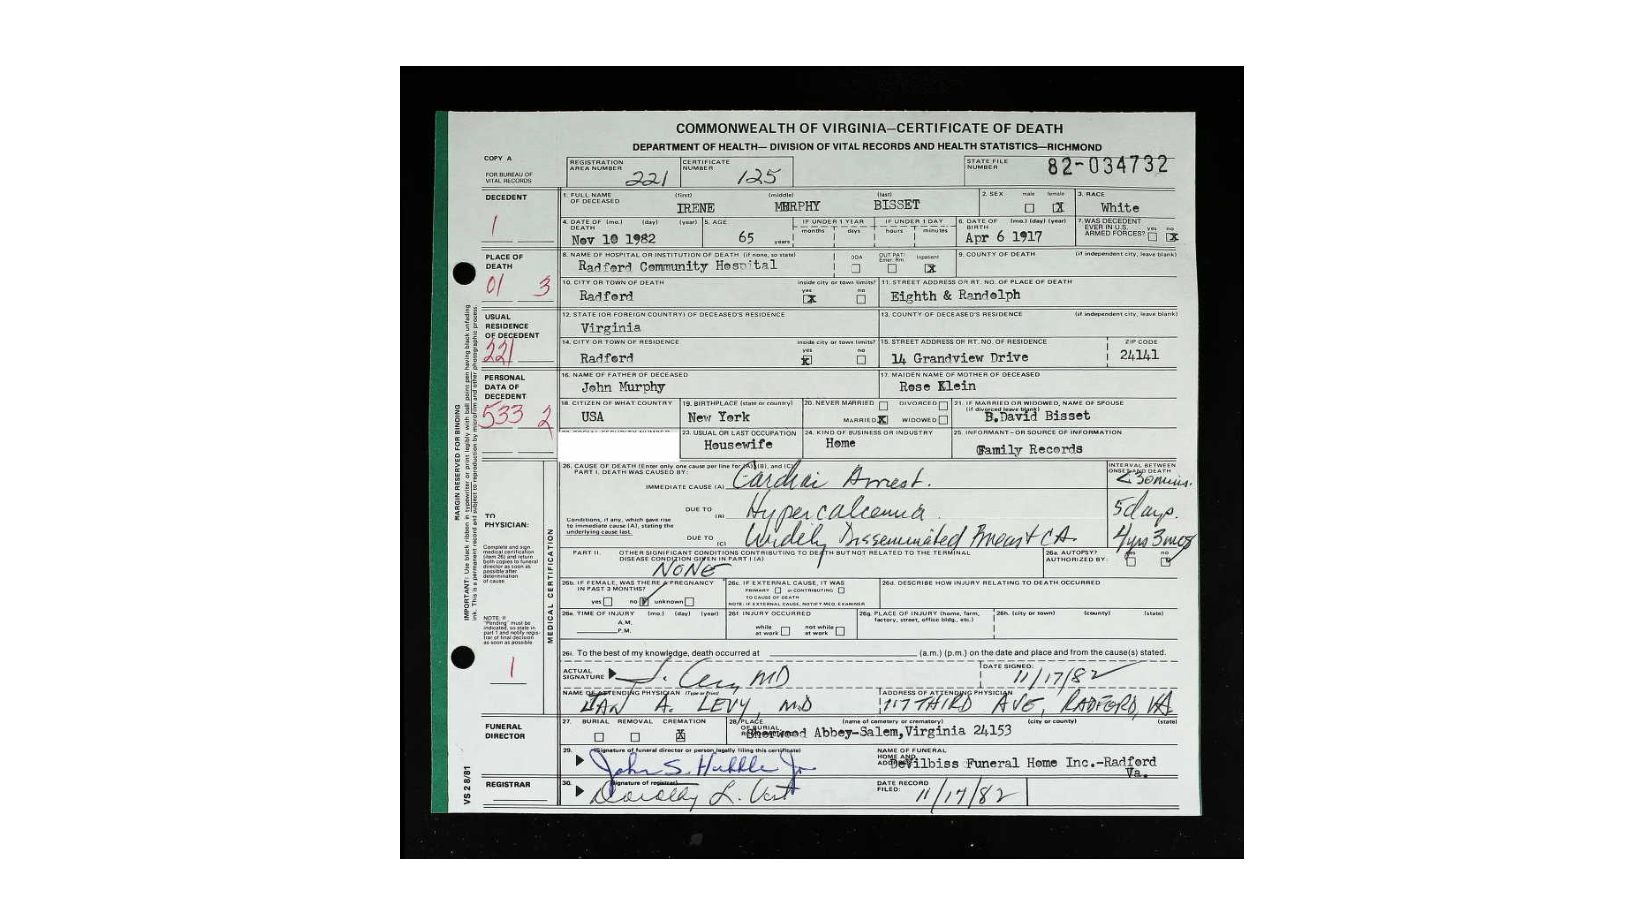 COMMONWEALTH OF VIRGINIA—CERTIFICATE OF DEATH
DEPARTMENT OF HEALTH— DIVISION OF VITAL RECORDS AND HEALTH STATISTICS—RICHMOND
COPY A
FOR BUREAU OF VITAL RECORDS
REGISTRATION AREA NUMBER 221
CERTIFICATE NUMBER 125
STATE FILE NUMBER 82-034732
DECEDENT
1
1. FULL NAME OF DECEASED (first) (middle) (last)
IRENE MURPHY BISSET
2. SEX male female X
3. RACE White
4. DATE OF DEATH (mo.) (day) (year) Nov 10 1982
5. AGE 65 years
IF UNDER 1 YEAR months days
IF UNDER 1 DAY hours minutes
6. DATE OF BIRTH (mo.) (day) (year) Apr 6 1917
7. WAS DECEDENT EVER IN U.S. ARMED FORCES? yes no X
PLACE OF DEATH
01 3
8. NAME OF HOSPITAL OR INSTITUTION OF DEATH (if none, so state)
Radford Community Hospital
DOA OUT PAT/ Emer. Rm. Inpatient X
9. COUNTY OF DEATH (if independent city, leave blank)
10. CITY OR TOWN OF DEATH Radford
inside city or town limits? yes X no
11. STREET ADDRESS OR RT. NO. OF PLACE OF DEATH
Eighth & Randolph
USUAL RESIDENCE OF DECEDENT
221
12. STATE (OR FOREIGN COUNTRY) OF DECEASED'S RESIDENCE
Virginia
13. COUNTY OF DECEASED'S RESIDENCE (if independent city, leave blank)
14. CITY OR TOWN OF RESIDENCE Radford
inside city or town limits? yes X no
15. STREET ADDRESS OR RT. NO. OF RESIDENCE
14 Grandview Drive
ZIP CODE 24141
PERSONAL DATA OF DECEDENT
533 2
16. NAME OF FATHER OF DECEASED
John Murphy
17. MAIDEN NAME OF MOTHER OF DECEASED
Rose Klein
18. CITIZEN OF WHAT COUNTRY USA
19. BIRTHPLACE (state or country) New York
20. NEVER MARRIED DIVORCED
MARRIED X WIDOWED
21. IF MARRIED OR WIDOWED, NAME OF SPOUSE
(if divorced leave blank)
B.David Bisset
23. USUAL OR LAST OCCUPATION Housewife
24. KIND OF BUSINESS OR INDUSTRY Home
25. INFORMANT—OR SOURCE OF INFORMATION
Family Records
MARGIN RESERVED FOR BINDING
MEDICAL CERTIFICATION
TO PHYSICIAN:
Complete and sign medical certification (item 26) and return both copies to funeral director as soon as possible after determination of cause
NOTE: If "Pending" must be indicated, so state in part 1 and notify registrar of final decision as soon as possible
1
26. CAUSE OF DEATH (Enter only one cause per line for (A), (B), and (C))
PART I. DEATH WAS CAUSED BY:
INTERVAL BETWEEN ONSET AND DEATH
IMMEDIATE CAUSE (A) Cardiac Arrest. <30 mins.
DUE TO (B) Hypercalcemia 5 days.
Conditions, if any, which gave rise to immediate cause (A), stating the underlying cause last.
DUE TO (C) Widely Disseminated Breast CA. 4 yrs 3 mos
PART II. OTHER SIGNIFICANT CONDITIONS CONTRIBUTING TO DEATH BUT NOT RELATED TO THE TERMINAL DISEASE CONDITION GIVEN IN PART I (A)
NONE
26a. AUTOPSY? AUTHORIZED BY: yes no
26b. IF FEMALE, WAS THERE A PREGNANCY IN PAST 3 MONTHS?
yes no unknown
26c. IF EXTERNAL CAUSE, IT WAS
PRIMARY or CONTRIBUTING
TO CAUSE OF DEATH
NOTE: IF EXTERNAL CAUSE, NOTIFY MED. EXAMINER
26d. DESCRIBE HOW INJURY RELATING TO DEATH OCCURRED
26e. TIME OF INJURY (mo.) (day) (year)
A.M.
P.M.
26f. INJURY OCCURRED
while at work not while at work
26g. PLACE OF INJURY (home, farm, factory, street, office bldg., etc.)
26h. (city or town) (county) (state)
26i. To the best of my knowledge, death occurred at (a.m.) (p.m.) on the date and place and from the cause(s) stated.
ACTUAL SIGNATURE MD
DATE SIGNED: 11/17/82
NAME OF ATTENDING PHYSICIAN (Type or Print)
A. LEVY, MD
ADDRESS OF ATTENDING PHYSICIAN
717 THIRD AVE, RADFORD, VA
FUNERAL DIRECTOR
27. BURIAL REMOVAL CREMATION X
28. PLACE OF BURIAL, (name of cemetery or crematory) (city or county) (state)
Sherwood Abbey-Salem,Virginia 24153
29. (Signature of funeral director or person legally filing this certificate)
John S. Hubble Jr.
NAME OF FUNERAL HOME AND ADDRESS
DeVilbiss Funeral Home Inc.-Radford Va.
REGISTRAR
30. (Signature of registrar)
Dorothy L. Vest
DATE RECORD FILED: 11/17/82
VS 2 8/81